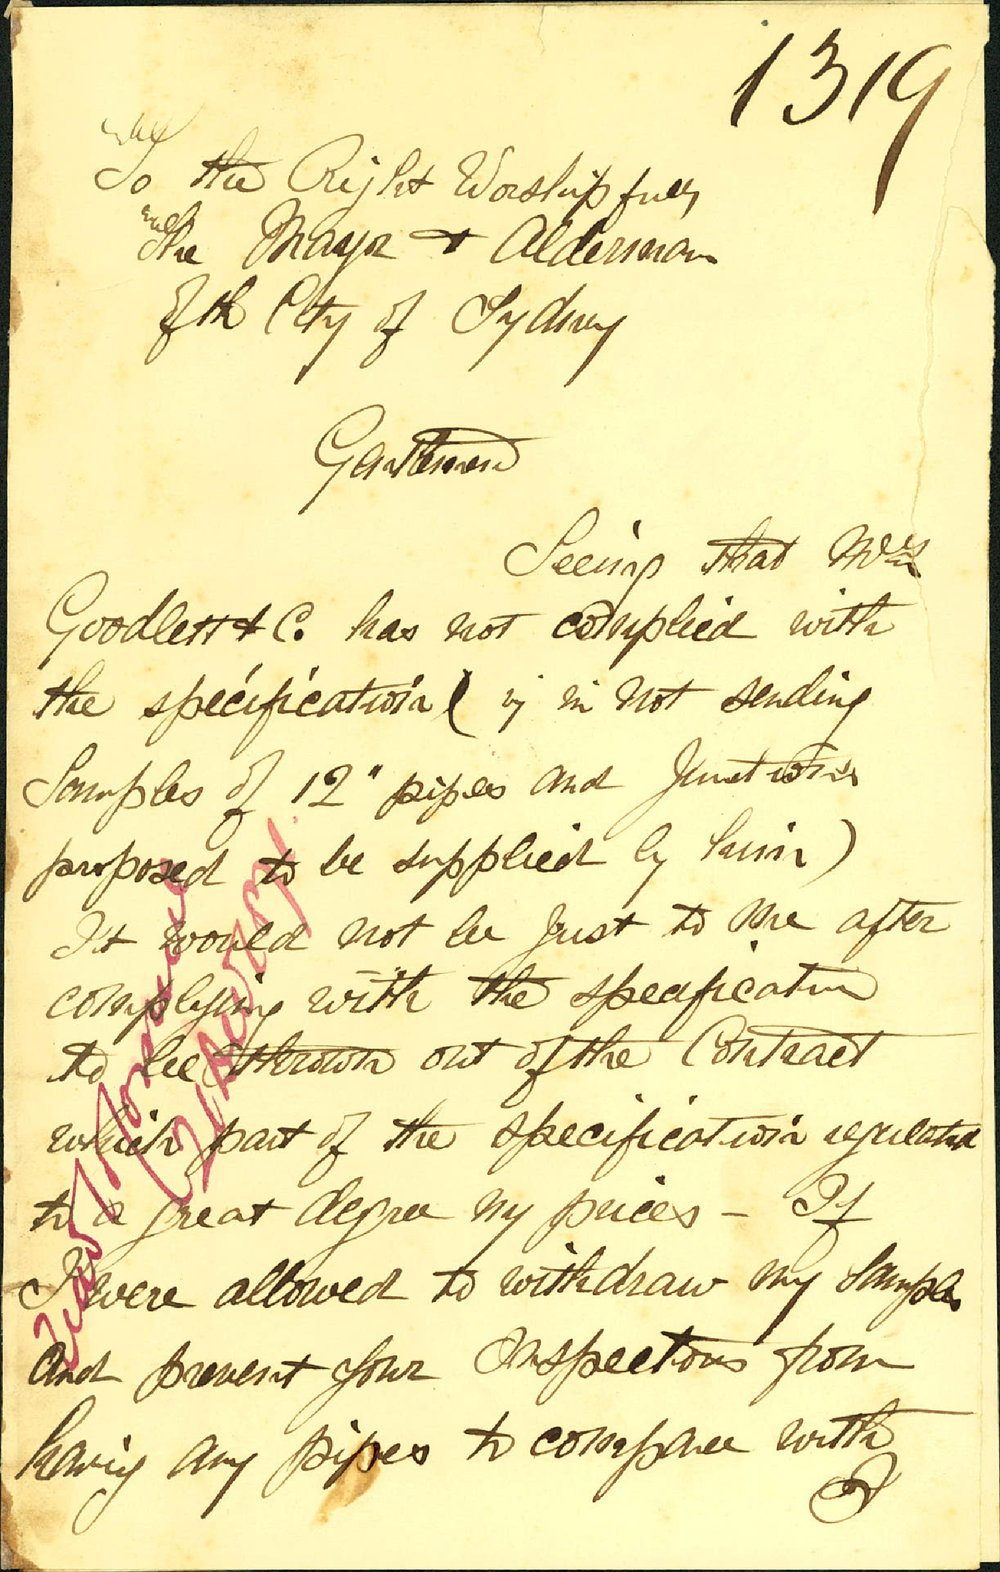 1319
To the Right Worshipfull
The Mayor & Alderman
of th City of Sydney
Gentlemen
Seeing that Mrss
Goodlett & C. has not complied with
the specification ( ij in not sending
Samples of 12" pipes and Junctions
proposed to be supplied by him )
It would not be Just to me after
complying with the specification
to be thrown out of the Contract
which part of the specification regulated
to a great degree my prices - If
I were allowed to withdraw my Samples
and prevent your Inspectors from
having any pipes to compare with